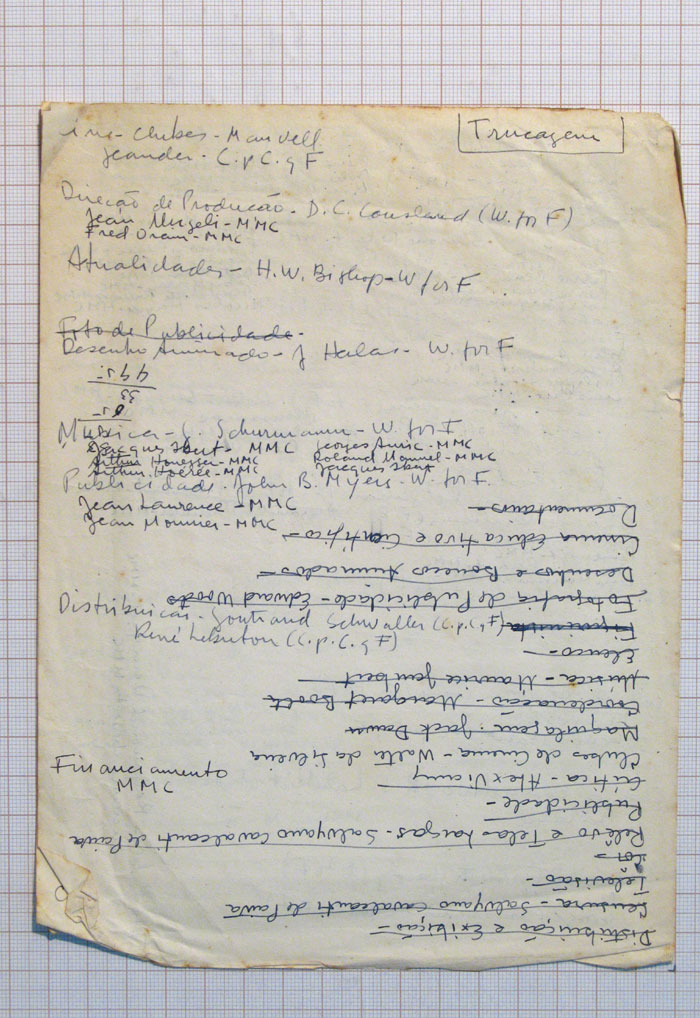 Trucagem
Cine-Clubes - Manvell
Jeander - C. p C. q F
Direção de Produção - D. C. (W. for F)
Jean - MMC
Fred Orain - MMC
Atualidades - H. W. Bishop - W for F
Foto de Publicidade -
Desenho Animado - J Halas - W. for F
Música - G. Schurmann - W. for F
Jacques Ibert - MMC Georges Auric - MMC
Arthur Honegger - MMC Roland Manuel - MMC
Arthur Hoérée - MMC Jacques Ibert
Publicidade - John B. Myers - W. for F.
Jean Laurence - MMC
Jean Mounier - MMC
Distribuição - Gontrand Schwaller (C. p. C. q F)
René Lebreton (C. p. C. q F)
Financiamento
MMC
Distribuição e Exibição -
Censura - Salvyano Cavalcanti de Paiva
Televisão -
Cor -
Relêvo e Telas Largas - Salvyano Cavalcanti de Paiva
Publicidade -
Crítica - Alex Viany
Clubes de Cinema - Walter da Silveira
Maquilagem - Jack Dawn
Coordenação - Margaret Booth
Música - Maurice Jambert
Elenco -
Figurinista
Fotografia de Publicidade - Edward Woods
Desenhos e Bonecos Animados -
Cinema Educativo e Científico -
Documentário -